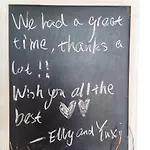 We had a great
time, thanks a
lot !!
Wish you all the
best
— Elly and Yuxi